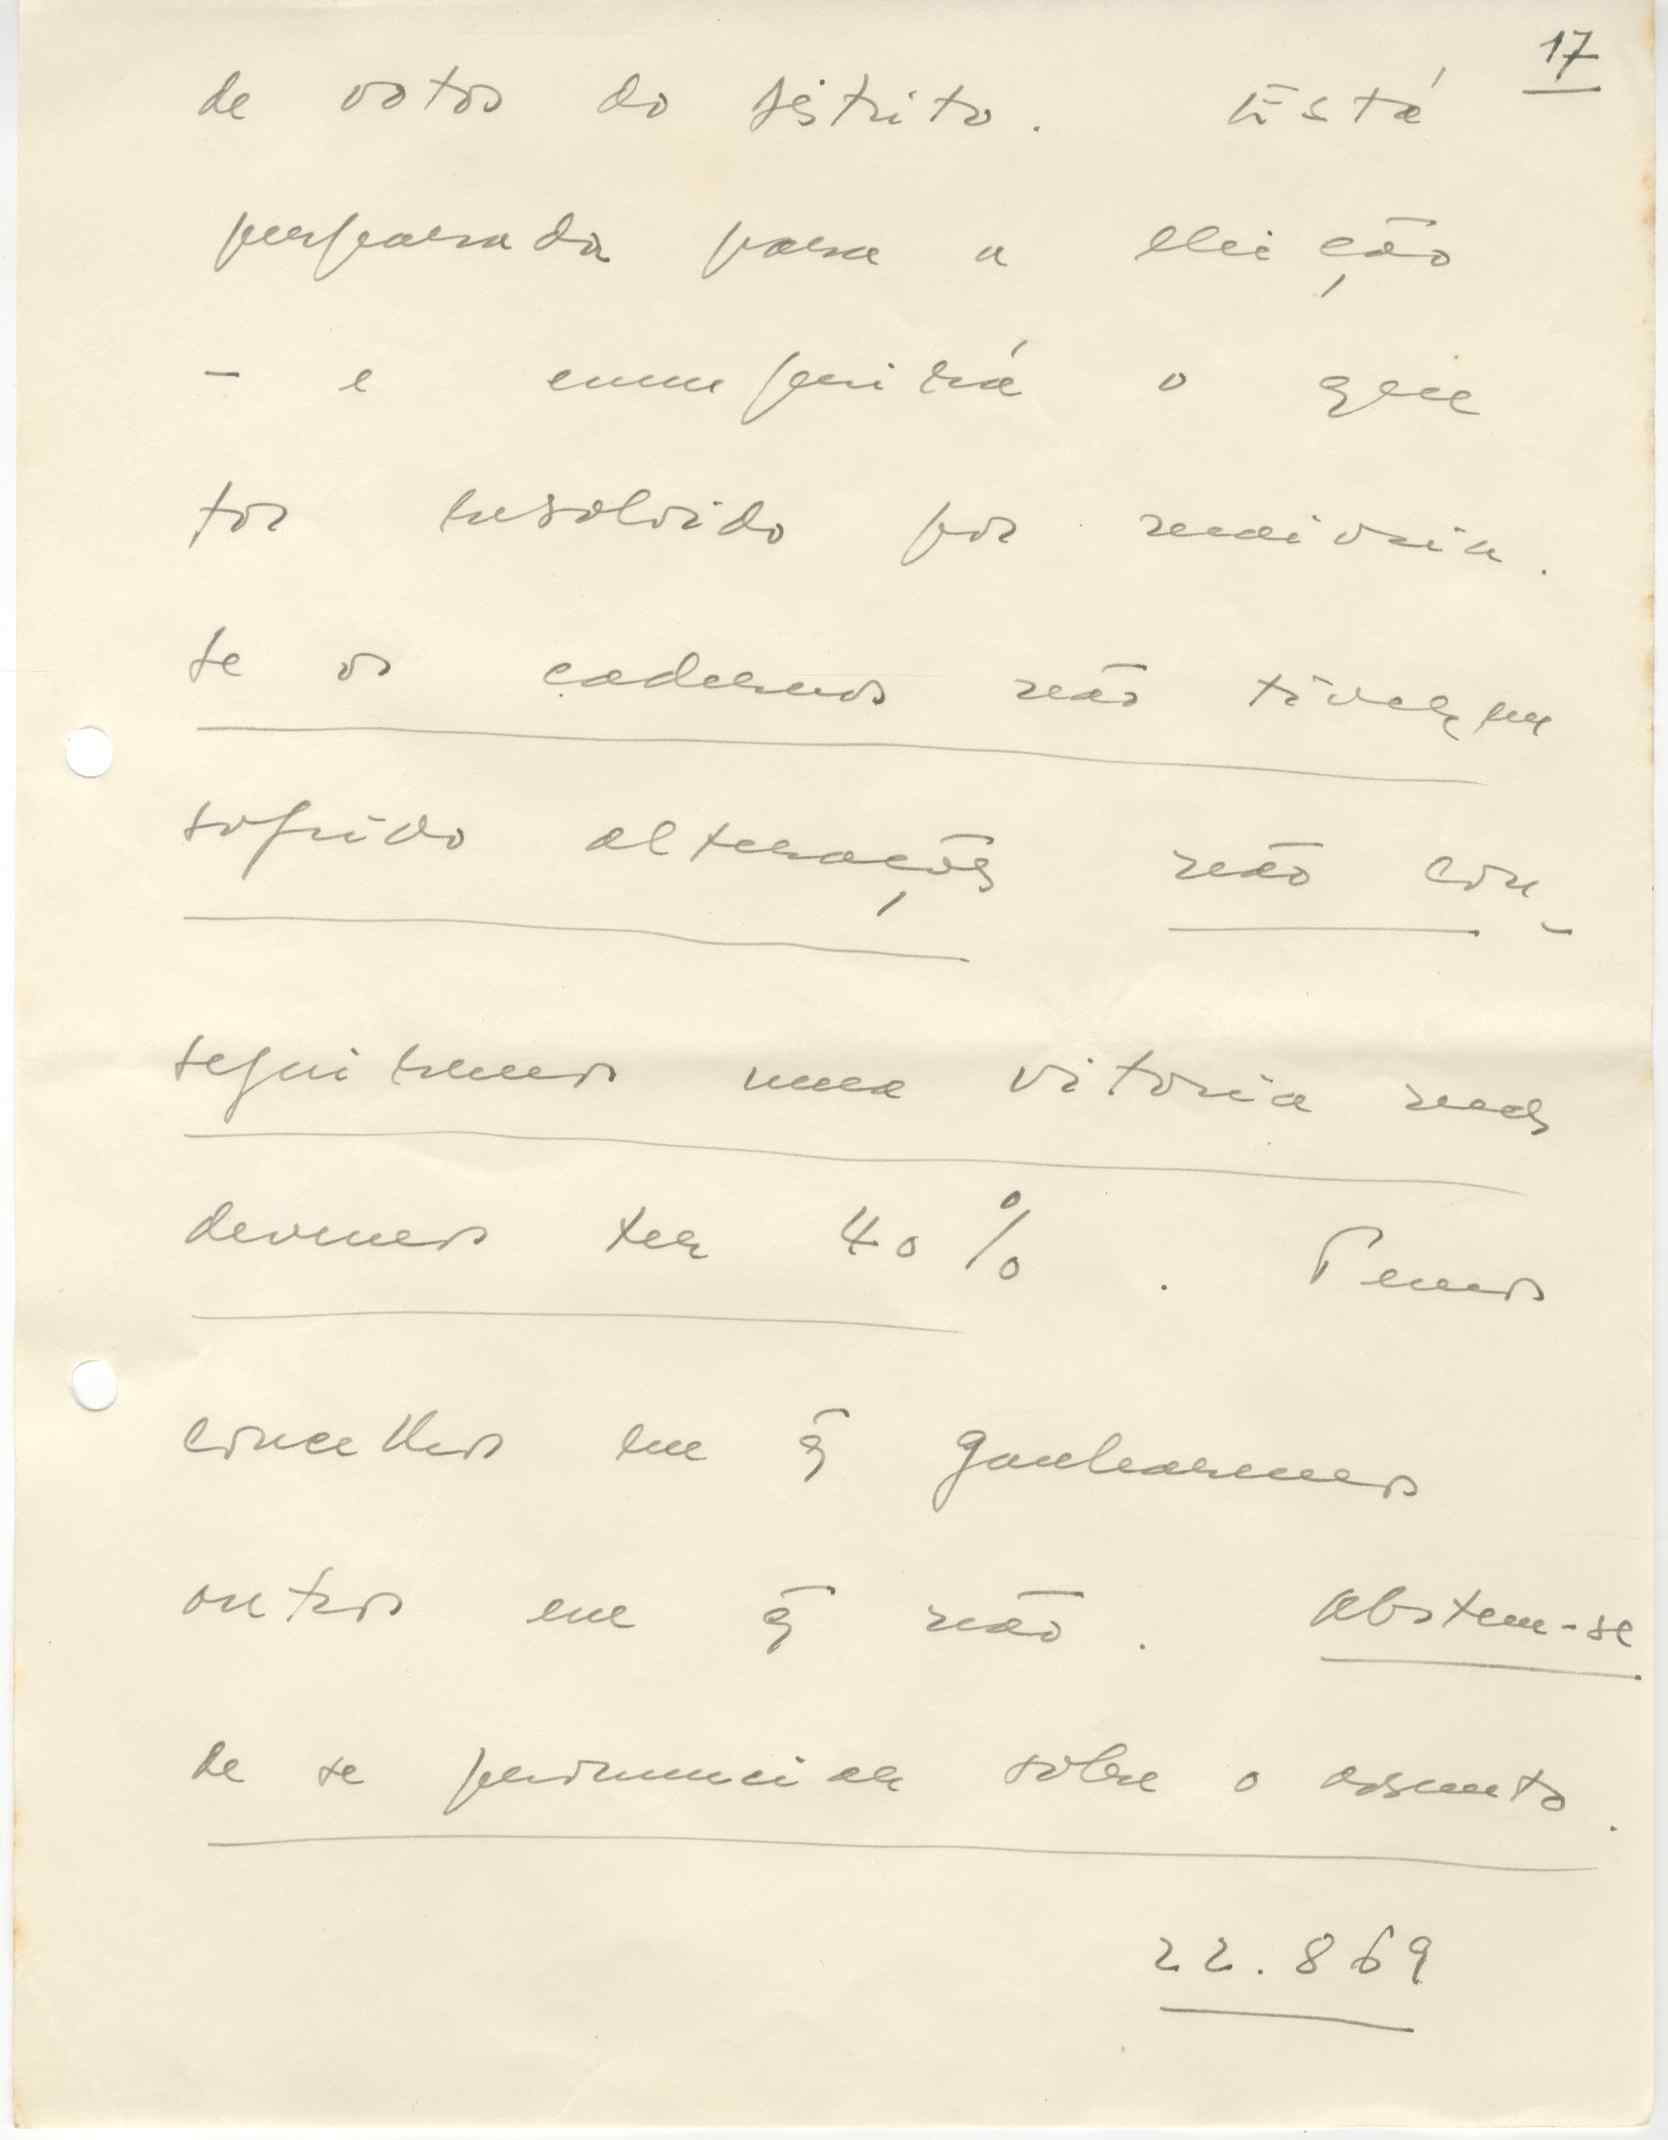 17
de votos do distrito. Está
preparada para a eleição
- e cumprirá o que
for resolvido por maioria.
Se os cadernos não tiverem
sofrido alterações não con-
seguiremos uma vitoria mas
devemos ter 40%. Temos
concelhos em q̄ ganharemos
outros em q̄ não. Abstem-se
de se pronunciar sobre o assunto.
22.869